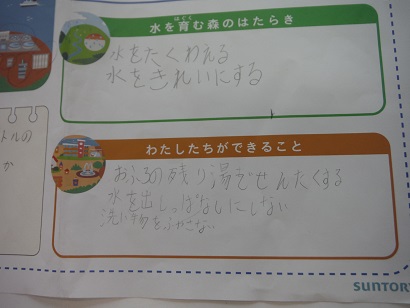 はぐく
水を育む森のはたらき
水をたくわえる
水をきれいにする
トルの
か
わたしたちができること
おふろの残り湯でせんたくする
水を出しっぱなしにしない
洗い物をふやさない
SUNTOR